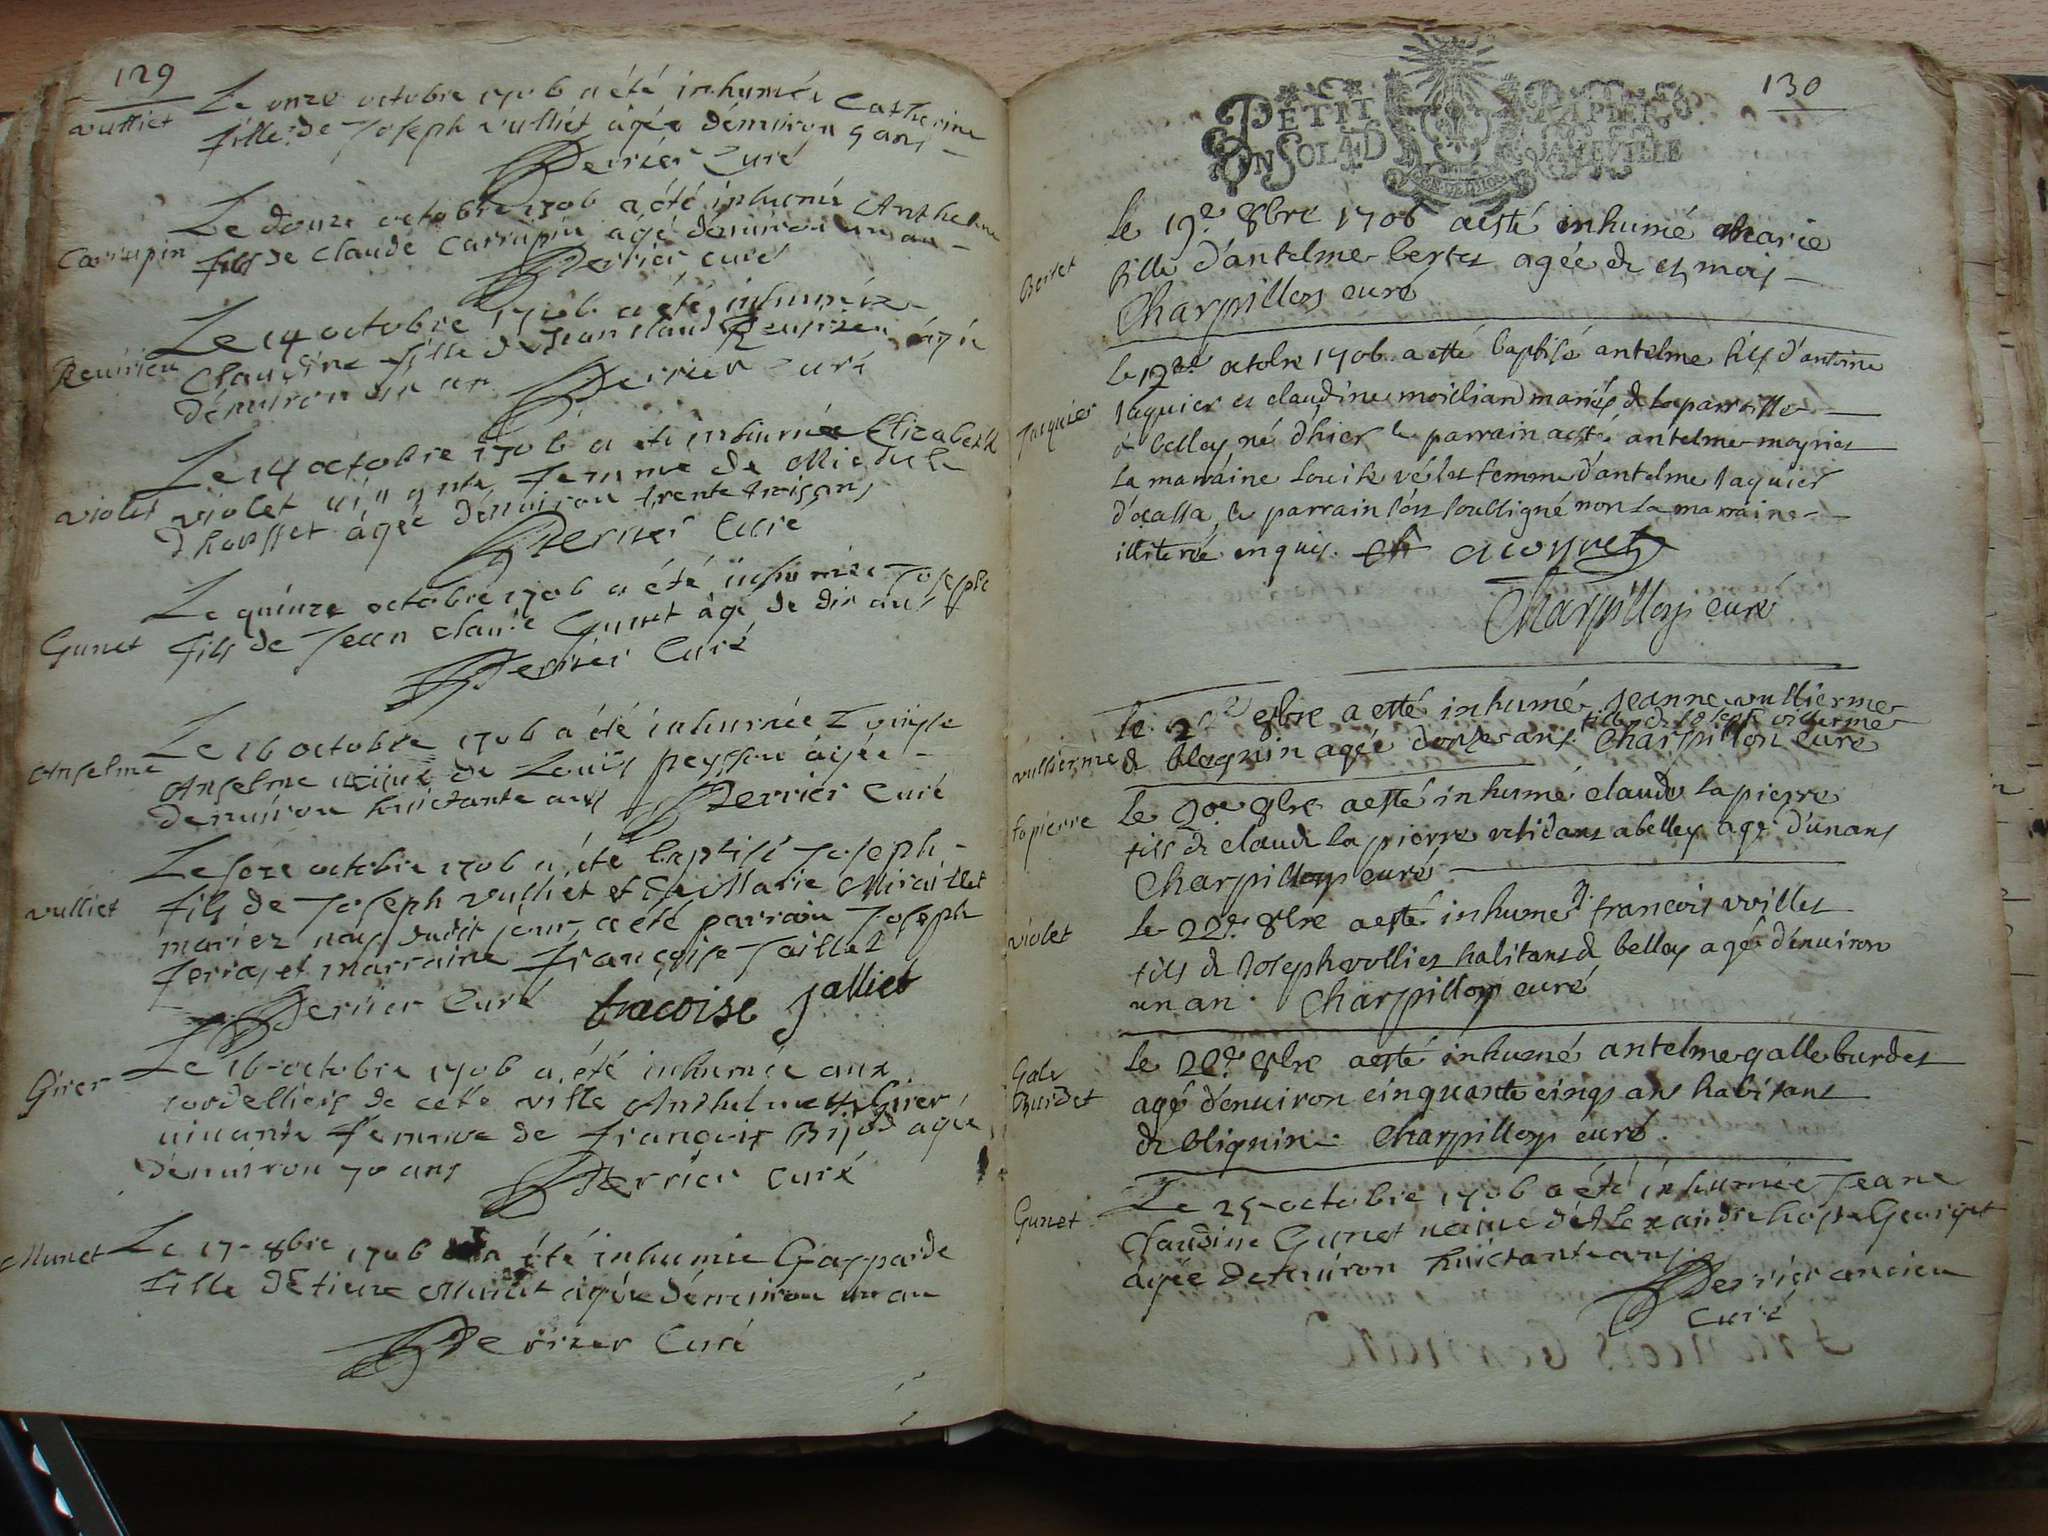 129
Vulliet
Le onze octobre 1706 a été inhumée Catherine
fille de Joseph Vulliet agée d'enuiron 5 ans
Perrier Curé
Carrupin
Le douze octobre 1706 a été inhumé Anthelme
fils de Claude Carrupin agé d'enuiron un an
Perrier curé
Reuirieu
Le 14 octobre 1706 a été inhumée
Claudine fille de Jean Claude Reuirieu agée
d'enuiron un an Perrier Curé
violet
Le 14 octobre 1706 a été inhumée Elizabeth
violet uiuante femme de Michel
d'housset agée d'enuiron trente trois ans
Perrier Curé
Gunet
Le quinze octobre 1706 a été inhumé Joseph
fils de Jean Claude Gunet agé de dix ans
Perrier Curé
Anselme
Le 16 octobre 1706 a été inhumée Louyse
Anselme ueuue de Louis peysson agée
d'enuiron huictante ans Perrier Curé
vulliet
Le seze octobre 1706 a été baptisé Joseph
fils de Joseph vulliet et de Marie Miraillet
mariez nay dudit jour, a été parrain Joseph
ferras et marraine françoise Jaillet
Perrier Curé fracoise Jalliet
Girer
Le 16 octobre 1706 a été inhumée aux
cordelliers de cette ville Anthelme Girer
uiuante femme de françois Bijod agée
d'enuiron 70 ans Perrier Curé
Munet
Le 17 8bre 1706 a été inhumée Gasparde
fille d'Etiene Munet agée d'enuiron un an
Perrier Curé
130
PETIT PAPIER
UN SOL 4 D LA FEUILLE
Bertet
le 19e 8bre 1706 a esté inhumé Marie
fille d'antelme bertet agée de et mois
Charpillon curé
Jaquier
le 12e octobre 1706 a etté baptisé antelme fils d'antoine
Jaquier et claudine moilliard mariés de la parroisse
de belley né d'hier le parrain a esté antelme moyriet
la marraine femme d'antelme Jaquier
le parrain s'est soubsigné non la marraine
illiterée enquis.
Charpillon curé
vullierme
le 8bre a esté inhumé Jeanne vullierme
fille de Joseph vullierme
de blegnin agée d'onze ans Charpillon curé
lapierre
le 20e 8bre a esté inhumé claude la pierre
fils de claude la pierre residant a belley agé d'un ans
Charpillon curé
violet
le 22e 8bre a esté inhumé françois
fils de Joseph habitant de belley agé d'enuiron
un an. Charpillon curé
Galle
Burdet
le 22e 8bre a esté inhumé antelme galle burdet
agé d'enuiron cinquante cinq ans habitant
de blignin. Charpillon curé.
Gunet
Le 25 octobre 1706 a été inhumée Jeane
Claudine Gunet ueuue d'Alexandre Georget
agée d'enuiron huictante ans
Perrier ancien
curé